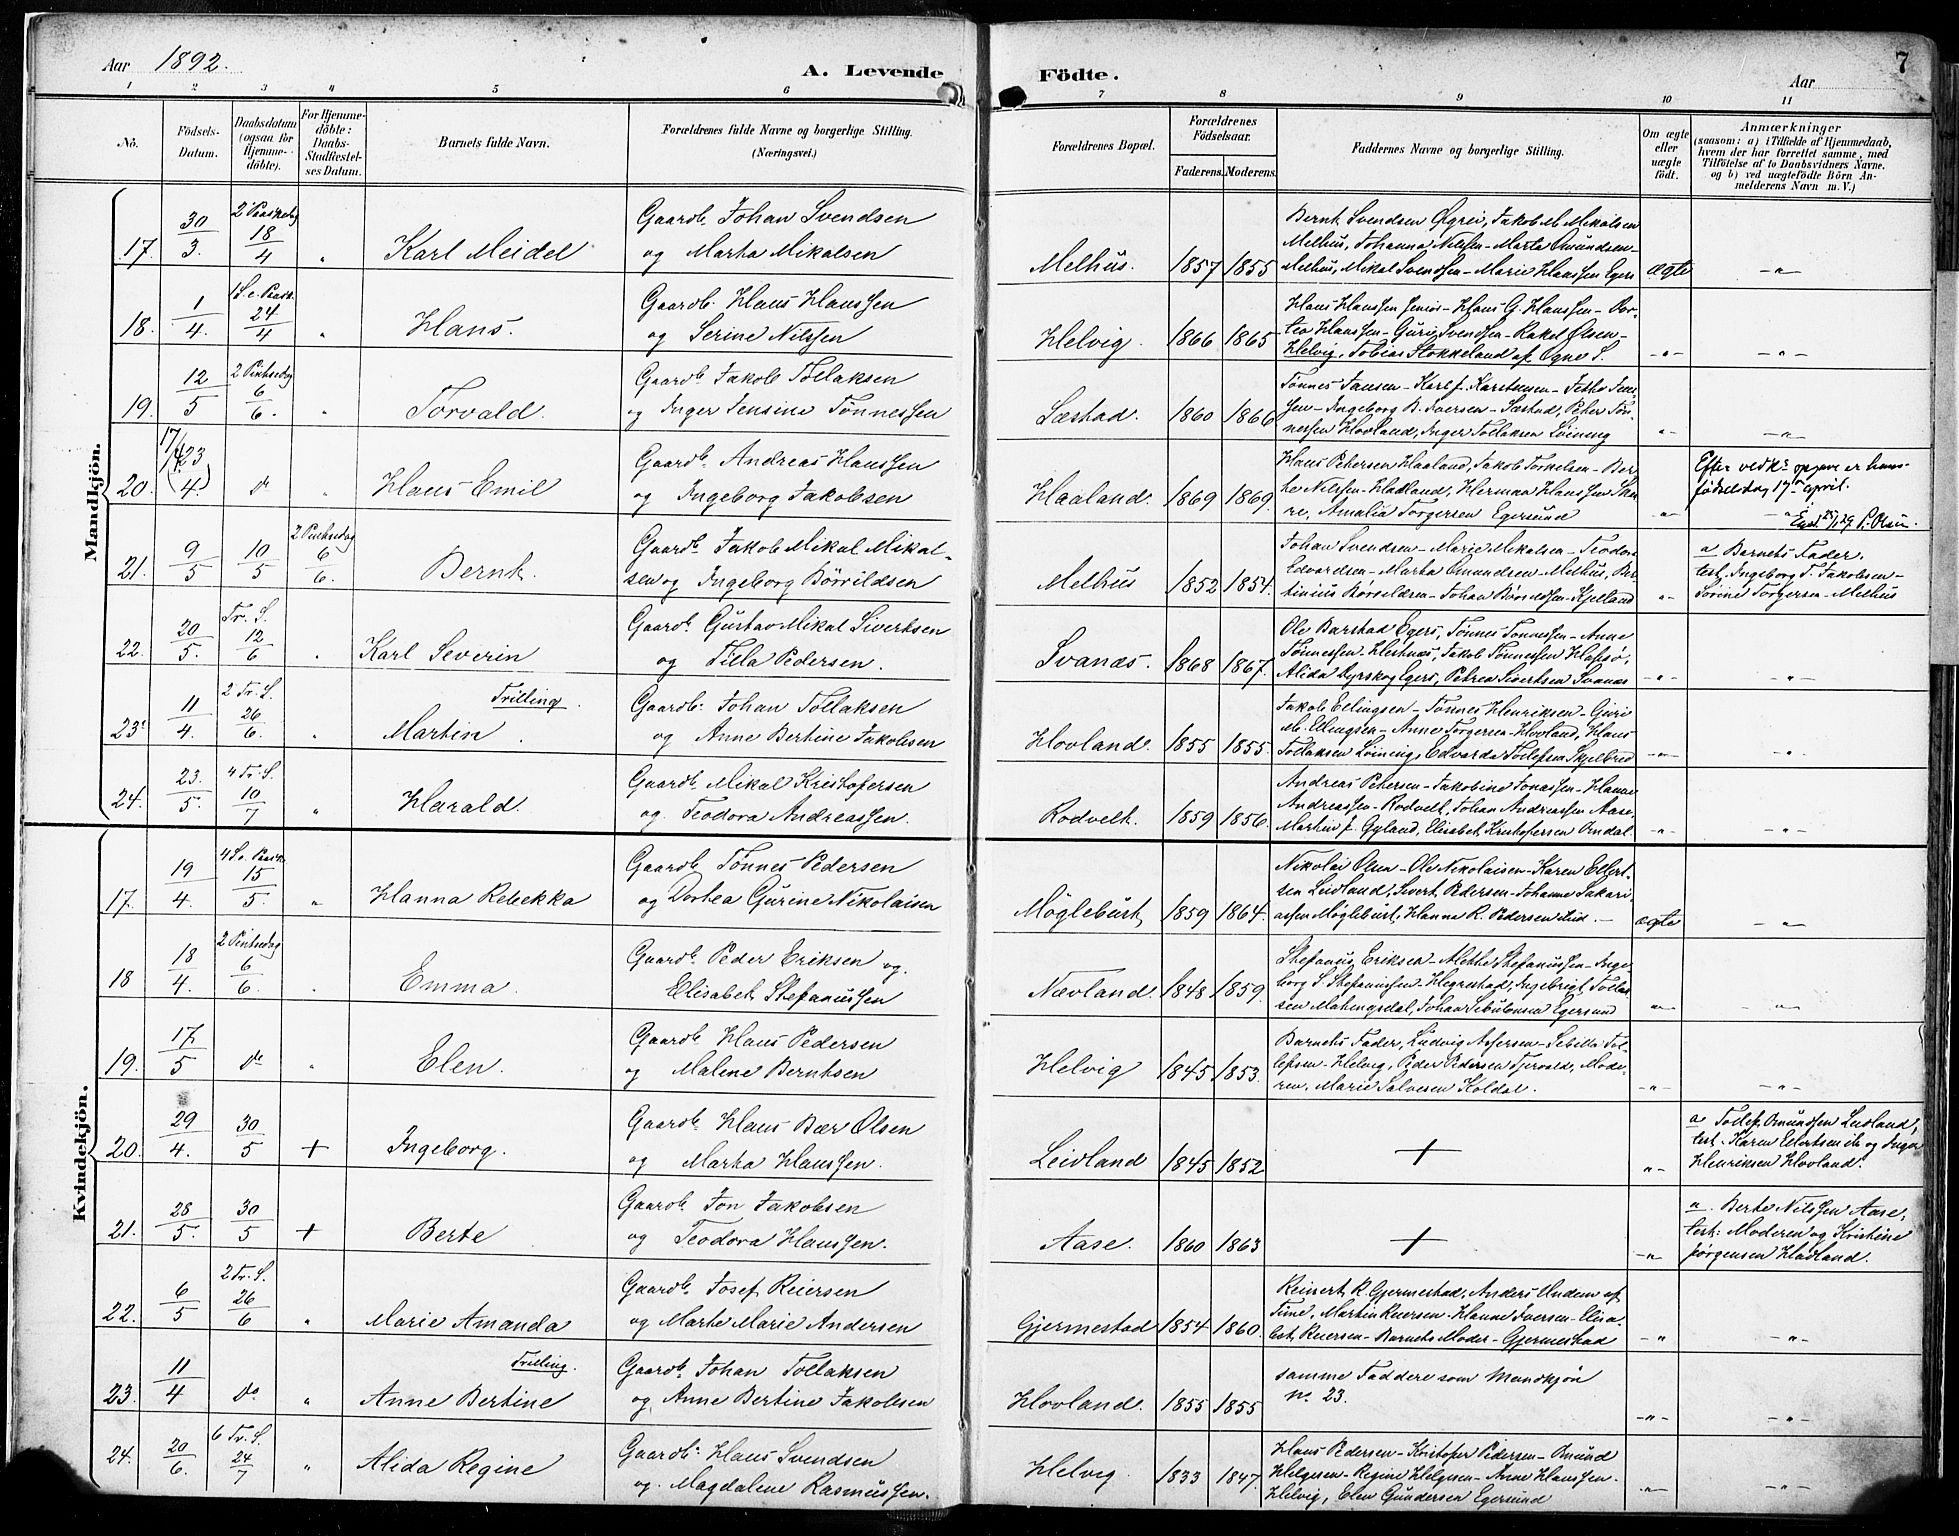 Aar 1892.
A. Levende Födte.
Aar
7
1 2 3 4 5 6 7 8 9 10 11
No.
Födsels-Datum.
Daabsdatum (ogsaa for Hjemme-döbte).
For Hjemme-döbte: Daabs-Stadfæstel-ses Datum.
Barnets fulde Navn.
Forældrenes fulde Navne og borgerlige Stilling.
(Næringsvei.)
Forældrenes Bopæl.
Forældrenes Födselsaar.
Faderens. Moderens.
Faddernes Navne og borgerlige Stilling.
Om ægte eller uægte födt.
Anmærkninger
(saasom: a) i Tilfælde af Hjemmedaab, hvem der har forrettet samme, med Tilföielse af to Daabsvidners Navne. og b) ved uægtefödte Börn An-melderens Navn m. V.)
Mandkjön.
17. 30/3. 2 Paaskedag 18/4 " Karl Meidel
Gaardb. Johan Svendsen
og Marta Mikalsen
Melhus. 1857 1855
Bernt Svendsen Øgrei, Jakob M Mikalsen
Melhus, Johanna Nilssen - Marta Omundsen -
Melhus, Mikal Svendsen - Marie Hanssen Egers
ægte -"-
18. 1/4. 1 S. e. Paask. 24/4 " Hans.
Gaardb. Hans Hanssen
og Serine Nilssen
Helvig. 1866 1865
Hans Hanssen senior - Hans G. Hanssen - Dor-
tea Hanssen - Guri Svendsen - Rakel Olsen -
Helvig, Tobias Stokkeland af Ogne S.
-"- -"-
19. 12/5 2 Pintsedag 6/6. " Torvald.
Gaardb. Jakob Tollaksen
og Inger Jensine Tønnessen
Sæstad. 1860 1866
Tønnes Jansen - Karl J. Karstensen -
Ingeborg B. Iversen - Sæstad, Peter Tøn-
nessen Hovland, Inger Tollaksen Løining
-"- -"-
20. 17/4 (23/4.) do " Hans Emil
Gaardb. Andreas Hanssen
og Ingeborg Jakobsen
Haaland. 1869 1869
Hans Petersen Haaland, Jakob Torkelsen - Ber-
te Nilssen - Hadland, Herman Hanssen
Amalia Torgersen Egersund
-"- Efter vedk. opgave er hans
fødselsdag 17de april.
P. Olsen.
21. 9/5 10/5 2 Pintsedag 6/6. Bernt.
Gaardb. Jakob Mikal Mikal-
sen og Ingeborg Børrildsen
Melhus 1852 1854.
Johan Svendsen - Marie Mikalsen - Teodor
Edvardsen - Marta Omundsen - Melhus, Ber-
tinius Børrildsen - Johan Kjelland
-"- a Barnets Fader,
test. Ingeborg T. Jakobsen -
Torgersen - Melhus
22. 20/5. Tr. S. 12/6 " Karl Severin
Gaardb. Gustav Mikal Sivertsen
og Tilla Pedersen.
Svanæs. 1868 1867.
Ole Barstad Egers, Tønnes Tønnessen - Anne
Tønnessen - Hestnæs, Jakob Tønnessen Hafsø,
Alida Dyrskog Egers, Petrea Sivertsen Svanæs
-"- -"-
23. 11/4. 2 Tr. S. 26/6. " Martin Trilling.
Gaardb. Johan Tollaksen
og Anne Bertine Jakobsen
Hovland. 1855 1855.
Jakob Ellingsen - Tønnes Henriksen - Guri
M. Ellingsen - Anne Torgersen - Hovland, Hans
Tollaksen Løining, Edvarda Tollefsen Skjelbred
-"- "
24. 23./5. 4 Tr. S. 10/7 " Harald.
Gaardb. Mikal Kristofersen
og Teodora Andreassen.
Rodvelt. 1859 1856.
Andreas Petersen - Jakobine Jonassen - Hanne
Andreassen - Rodvelt, Johan Andreassen Aase,
Martin J. Gyland, Elisabet Kristofersen Omdal
-"- -"-
Kvindekjön.
17. 19/4. 4 S. e. Paask. 15/5. " Hanna Rebekka
Gaardb. Tønnes Pedersen
og Dortea Gurine Nikolaisen
Møglebust 1859 1864.
Nikolai Olsen - Ole Nikolaisen - Karen Ellert-
sen Leidland, Sivert Pedersen - Johanne Sakari-
assen Møglebust, Hanna R. Pedersen
ægte -"-
18 18/4. 2 Pintsedag 6/6. " Emma.
Gaardb. Peder Eriksen og
Elisabet Stefanussen
Nævland. 1848 1859.
Stefanus Eriksen - Alette Stefanussen - Inge-
borg S. Stefanussen - Hegrestad, Ingebrigt Tollef-
sen Mahingsdal, Johan Egersund
-"- -"-
19. 17/5 do " Elen.
Gaardb. Hans Pedersen
og Malene Berntsen
Helvig 1845 1853.
Barnets Fader, Ludvig Assersen - Sebilla Tol-
lefsen - Helvig, Peder Pedersen Mode-
ren, Marie Salvesen Koldal.
-"- -"-
20. 29/4. 30/5 + Ingeborg.
Gaardb. Hans Bær Olsen
og Marta Hanssen.
Leidland 1845 1852
+
-"- a Tollef Omundsen Leidland,
test. Karen Ellertsen ib og Inger
Henriksen Hovland.
21. 28/5. 30/5 + Berte
Gaardb. Jon Jakobsen
og Teodora Hanssen.
Aase. 1860 1863
+
-"- a. Berte Nilssen Aase,
test: Moderen og Kristine
Jørgensen Hadland.
22. 6/5 2 Tr. S. 26/6 " Marie Amanda
Gaardb. Josef Reiersen
og Marte Marie Andersen
Gjermestad 1854 1860.
Reinert R. Gjermestad, Anders Undem af
Time, Martin Reiersen - Hanne Iversen - Elisa-
bet Reiersen - Barnets Moder - Gjermestad
-"- -"-
23 11/4 do " Anne Bertine Trilling.
Gaardb. Johan Tollaksen
og Anne Bertine Jakobsen
Hovland. 1855 1855
samme Faddere som Mandkjøn
no. 23.
-"- -"-
24. 20/6. 6 Tr. S. 24/7 " Alida Regine
Gaardb. Hans Svendsen
og Magdalene Rasmussen.
Helvig. 1833 1847.
Hans Pedersen - Kristofer Pedersen - Omund
Helgesen - Regine Helgesen - Anne Hanssen -
Helvig, Elen Gundersen Egersund
-"- -"-